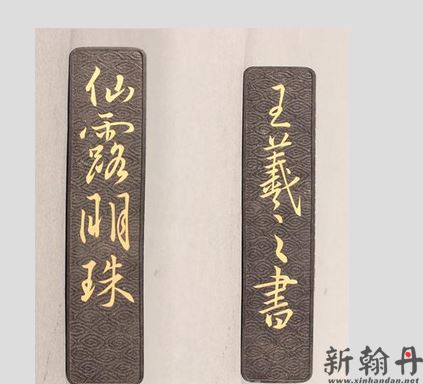 仙露明珠
王羲之書
新翰丹
www.xinhandan.net